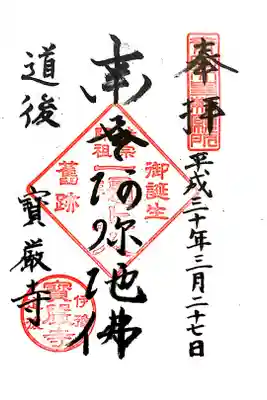 奉拝
平成三十年三月二十七日
南無阿弥陀佛
御誕生
舊跡
道後
寳厳寺
寳厳寺